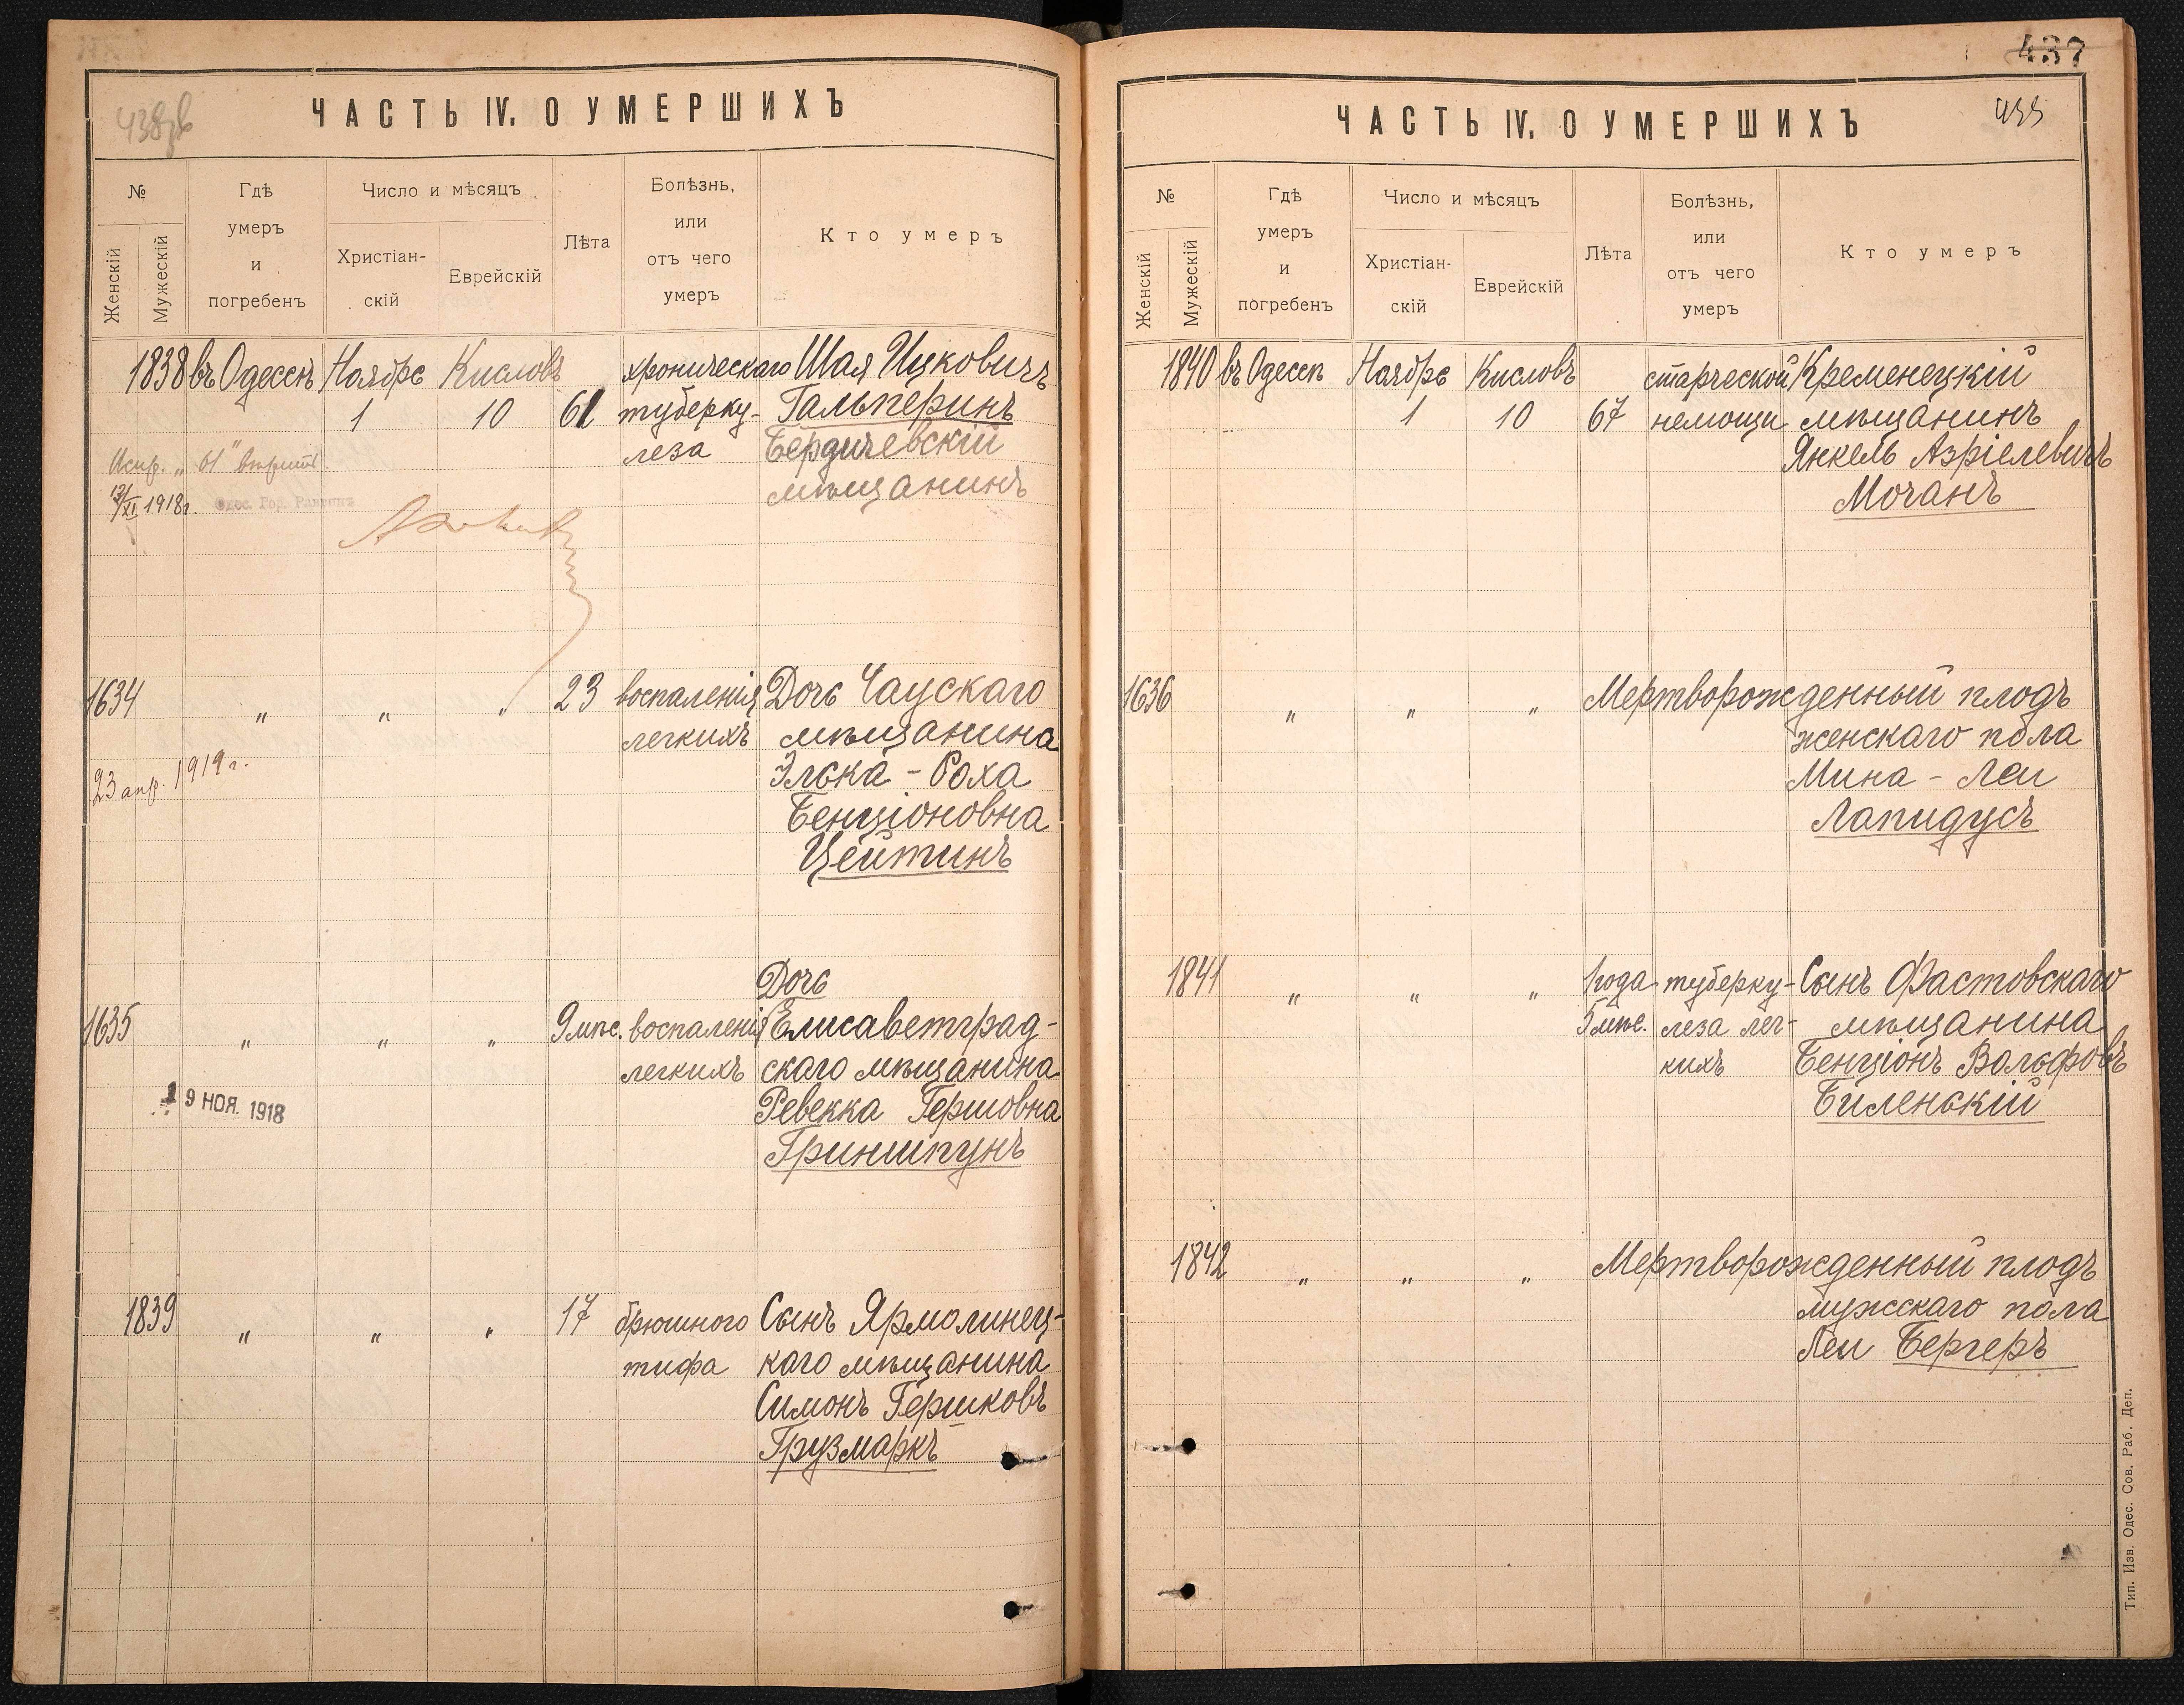 ЧАСТЬ IV. О УМЕРШИХЪ
№
Женскій
Мужескій
Гдѣ
умеръ
и
погребенъ
Число и мѣсяцъ
Христіан-
скій
Еврейскій
Лѣта
Болѣзнь,
или
отъ чего
умеръ
Кто умеръ
1838 въ Одессѣ Ноября Кисловъ хроническаго Шая Ицковичъ
1 10 61 туберку- Гальперинъ
леза Бердичевскій
мѣщанинъ
Испр. „61" вѣрить
12/XI 1918 г.
Одес. Гор. Раввинъ
1634 " " " 23 воспаленія Дочь Чаускаго
легкихъ мѣщанина
Элька - Роха
Бенціоновна
Цейтинъ
23 апр. 1919 г.
Дочь
1635 " " " 9 мѣс. воспаленія Елисаветград-
легкихъ скаго мѣщанина
Ревекка Гершовна
Гриншпунъ
19 НОЯ. 1918
1839 " " " 17 брюшного Сынъ Ярмолинец-
тифа каго мѣщанина
Симонъ Гершковъ
Грузмаркъ
437
ЧАСТЬ IV. О УМЕРШИХЪ
№
Женскій
Мужескій
Гдѣ
умеръ
и
погребенъ
Число и мѣсяцъ
Христіан-
скій
Еврейскій
Лѣта
Болѣзнь,
или
отъ чего
умеръ
Кто умеръ
1840 въ Одессѣ Ноября Кисловъ старческой Кременецкій
1 10 67 немощи мѣщанинъ
Янкель Азріелевичъ
Мочанъ
1636 " " " Мертворожденный плодъ
женскаго пола
Мина - Леи
Лапидусъ
1841 " " " 1 года туберку- Сынъ Фастовскаго
5 мѣс. леза лег- мѣщанина
кихъ Бенціонъ Вольфовъ
Биленькій
1842 " " " Мертворожденный плодъ
мужскаго пола
Леи Бергеръ
Тип. Изв. Одес. Сов. Раб. Деп.